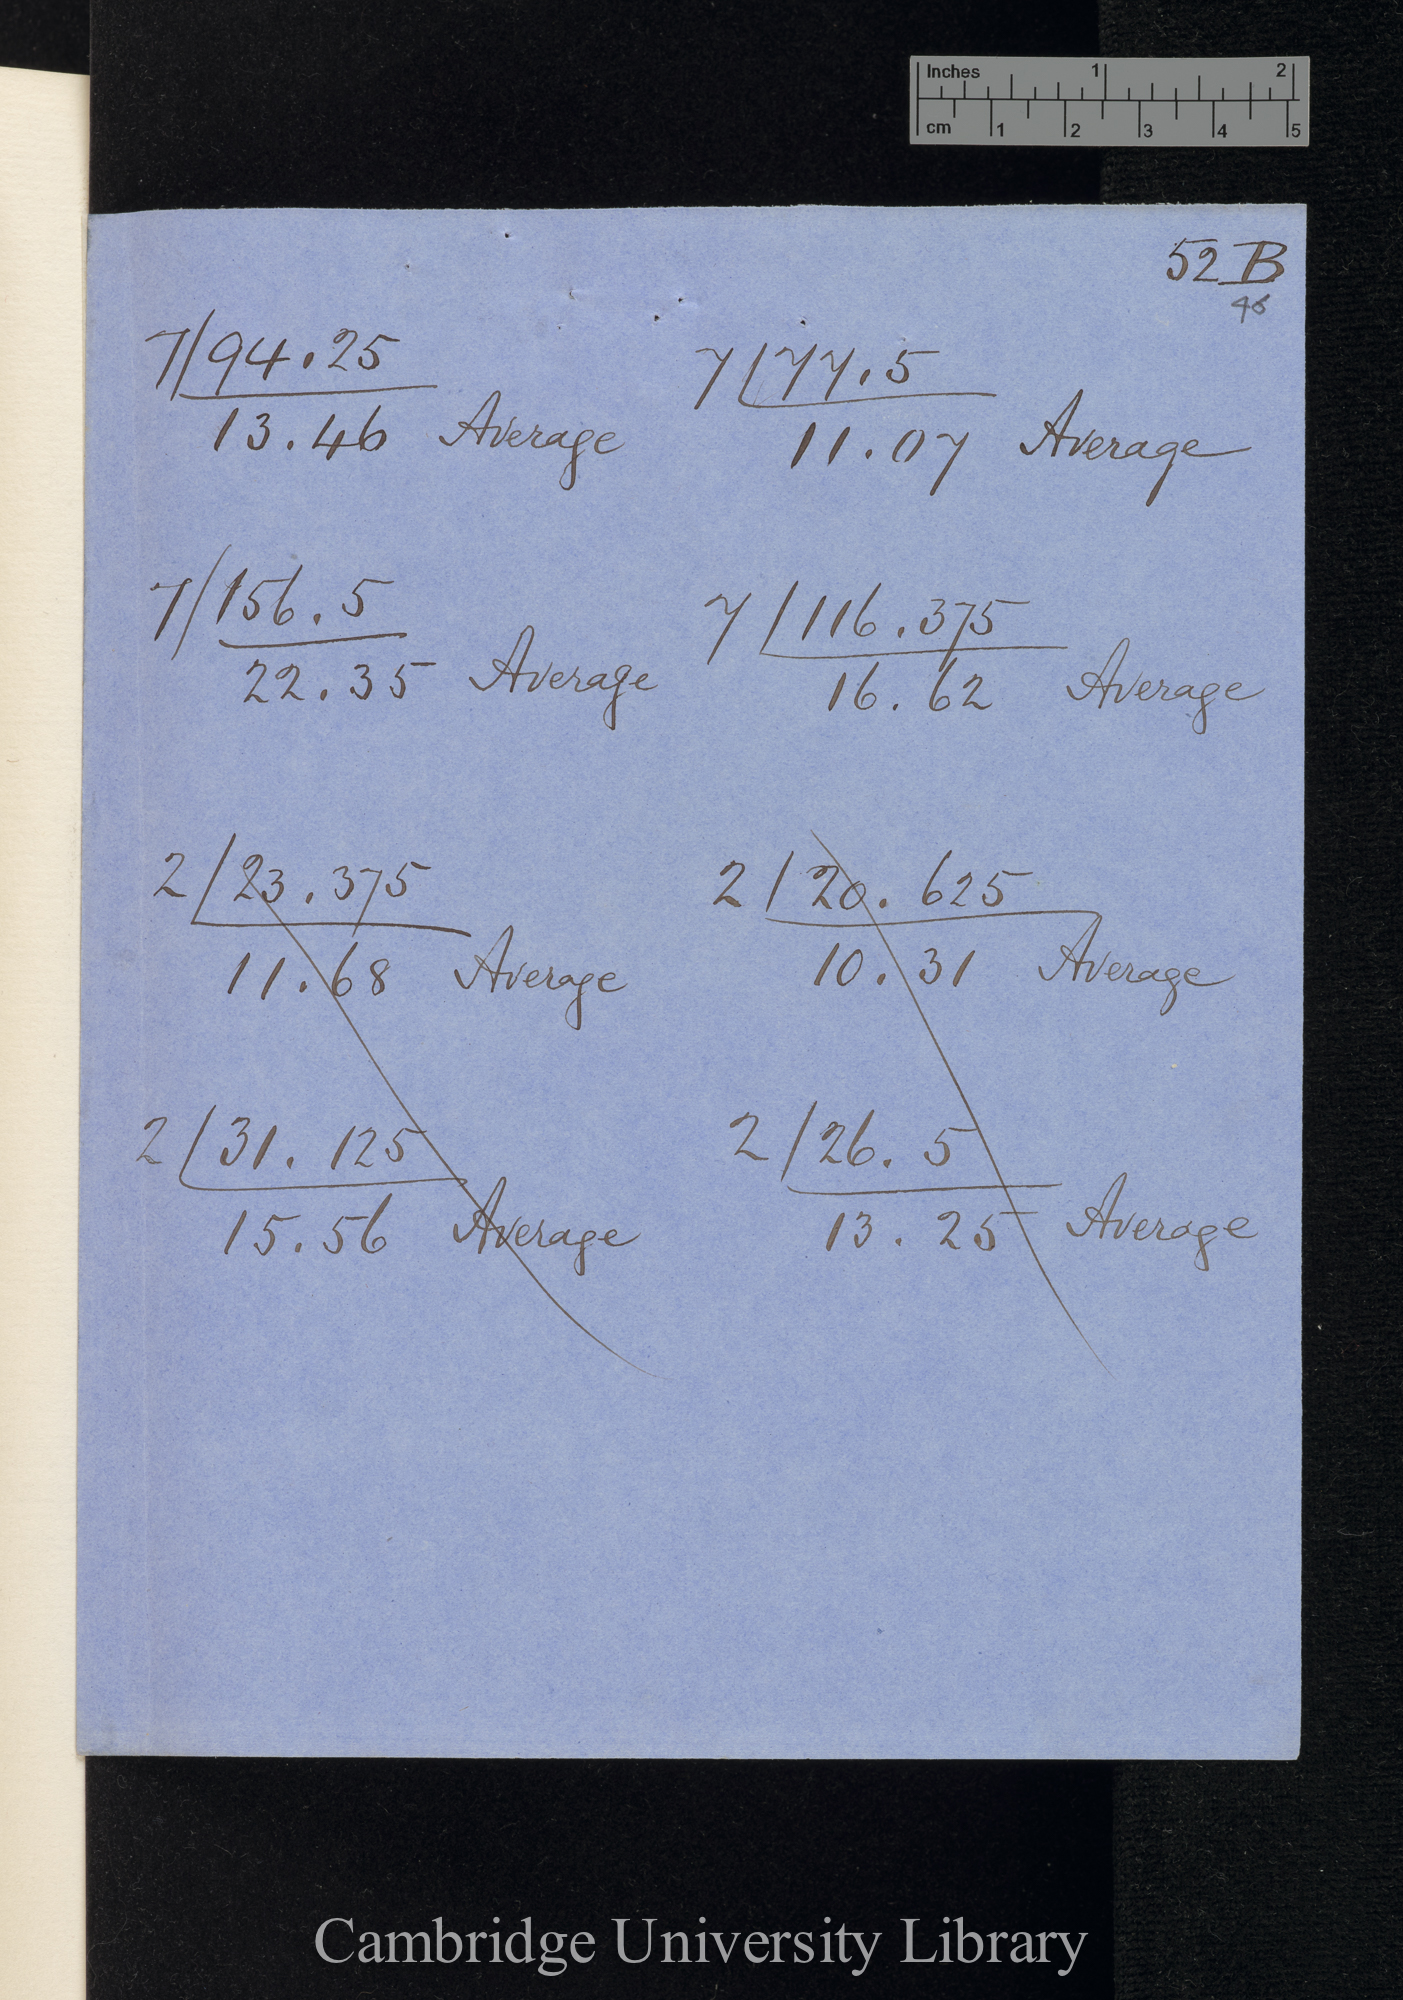 Inches 1 2
cm 1 2 3 4 5
52 B
46
7/94.25 7/77.5
13.46 Average 11.07 Average
7/156.5 7/116.375
22.35 Average 16.62 Average
2/23.375 2/20.625
11.68 Average 10.31 Average
2/31.125 2/26.5
15.56 Average 13.25 Average
Cambridge University Library